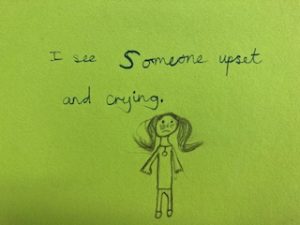 I see Someone upset
and crying.